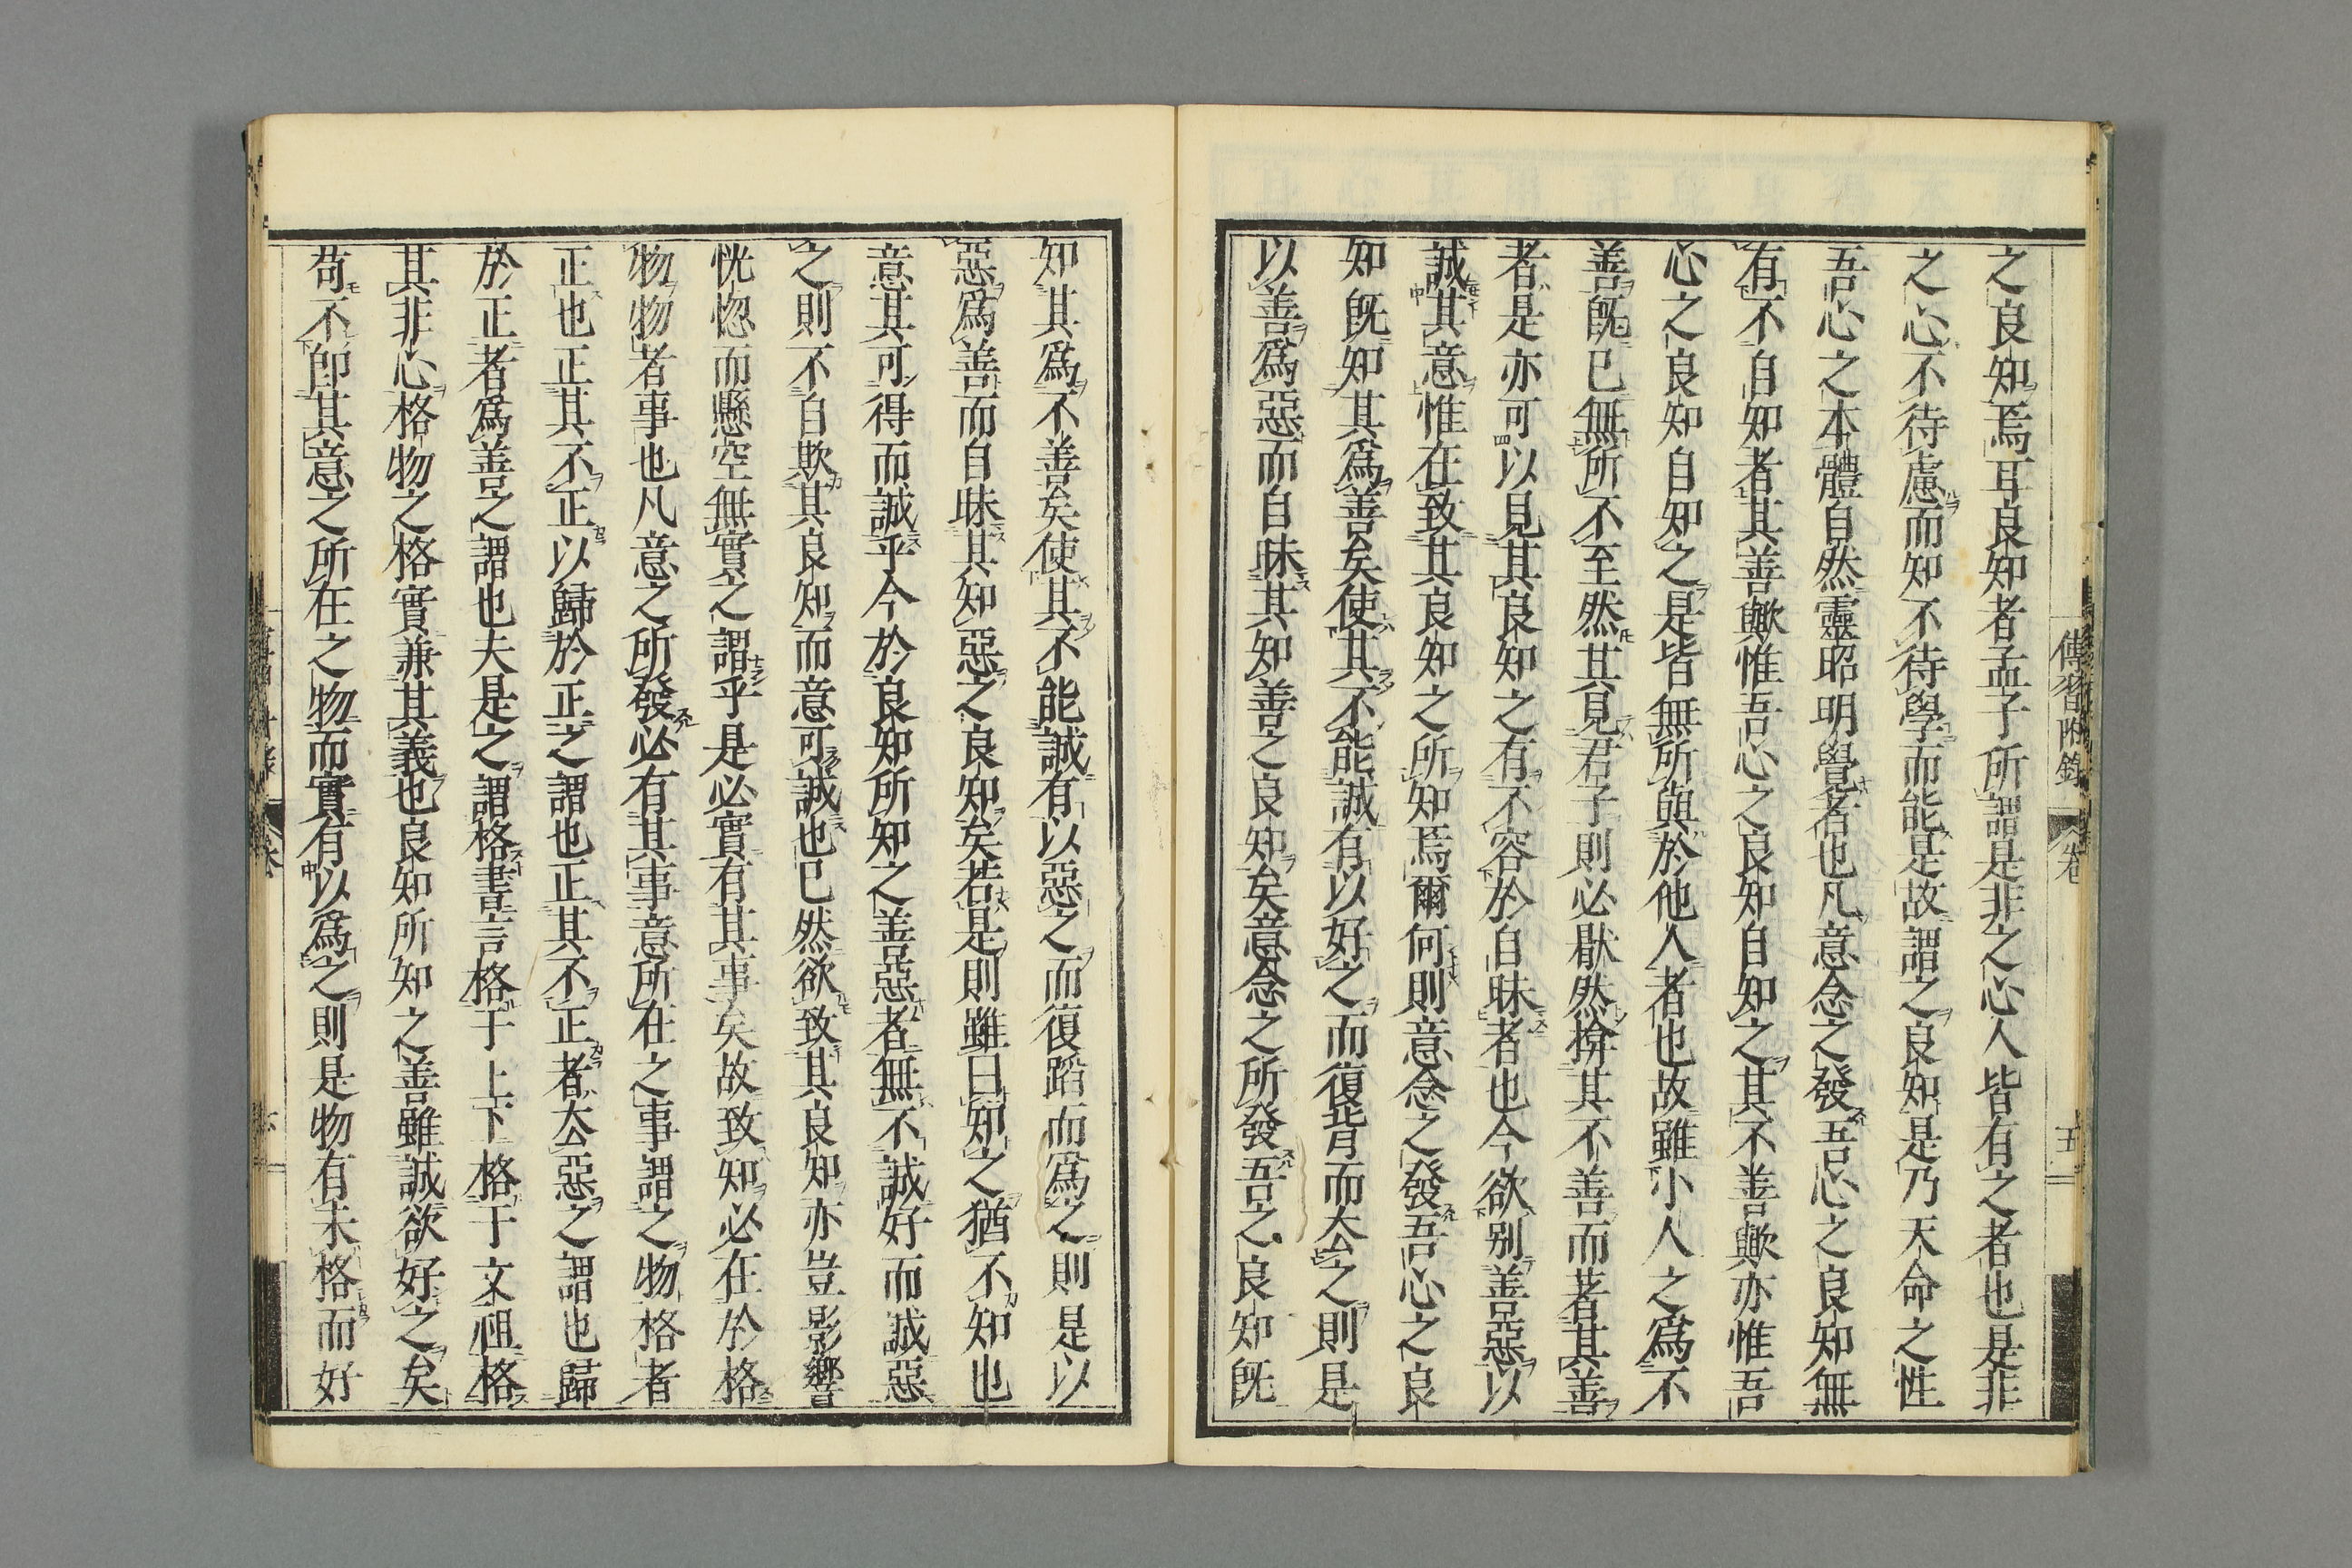 傳習附錄
卷
五
之良知焉耳良知者孟子所謂是非之心人皆有之者也是非
之心不待慮而知不待學而能是故謂之良知是乃天命之性
吾心之本體自然靈昭明覺者也凡意念之發吾心之良知無
有不自知者其善歟惟吾心之良知自知之其不善歟亦惟吾
心之良知自知之是皆無所與於他人者也故雖小人之爲不
善既已無所不至然其見君子則必厭然揜其不善而著其善
者是亦可以見其良知之有不容於自昧者也今欲別善惡以
誠其意惟在致其良知之所知焉爾何則意念之發吾心之良
知既知其爲善矣使其不能誠有以好之而復背而去之則是
以善爲惡而自昧其知善之良知矣意念之所發吾之良知既
知其爲不善矣使其不能誠有以惡之而復蹈而爲之則是以
惡爲善而自昧其知惡之良知矣若是則雖曰知之猶不知也
意其可得而誠乎今於良知所知之善惡者無不誠好而誠惡
之則不自欺其良知而意可誠也已然欲致其良知亦豈影響
恍惚而懸空無實之謂乎是必實有其事矣故致知必在於格
物物者事也凡意之所發必有其事意所在之事謂之物格者
正也正其不正以歸於正之謂也正其不正者去惡之謂也歸
於正者爲善之謂也夫是之謂格書言格于上下格于文祖格
其非心格物之格實兼其義也良知所知之善雖誠欲好之矣
苟不卽其意之所在之物而實有以爲之則是物有未格而好